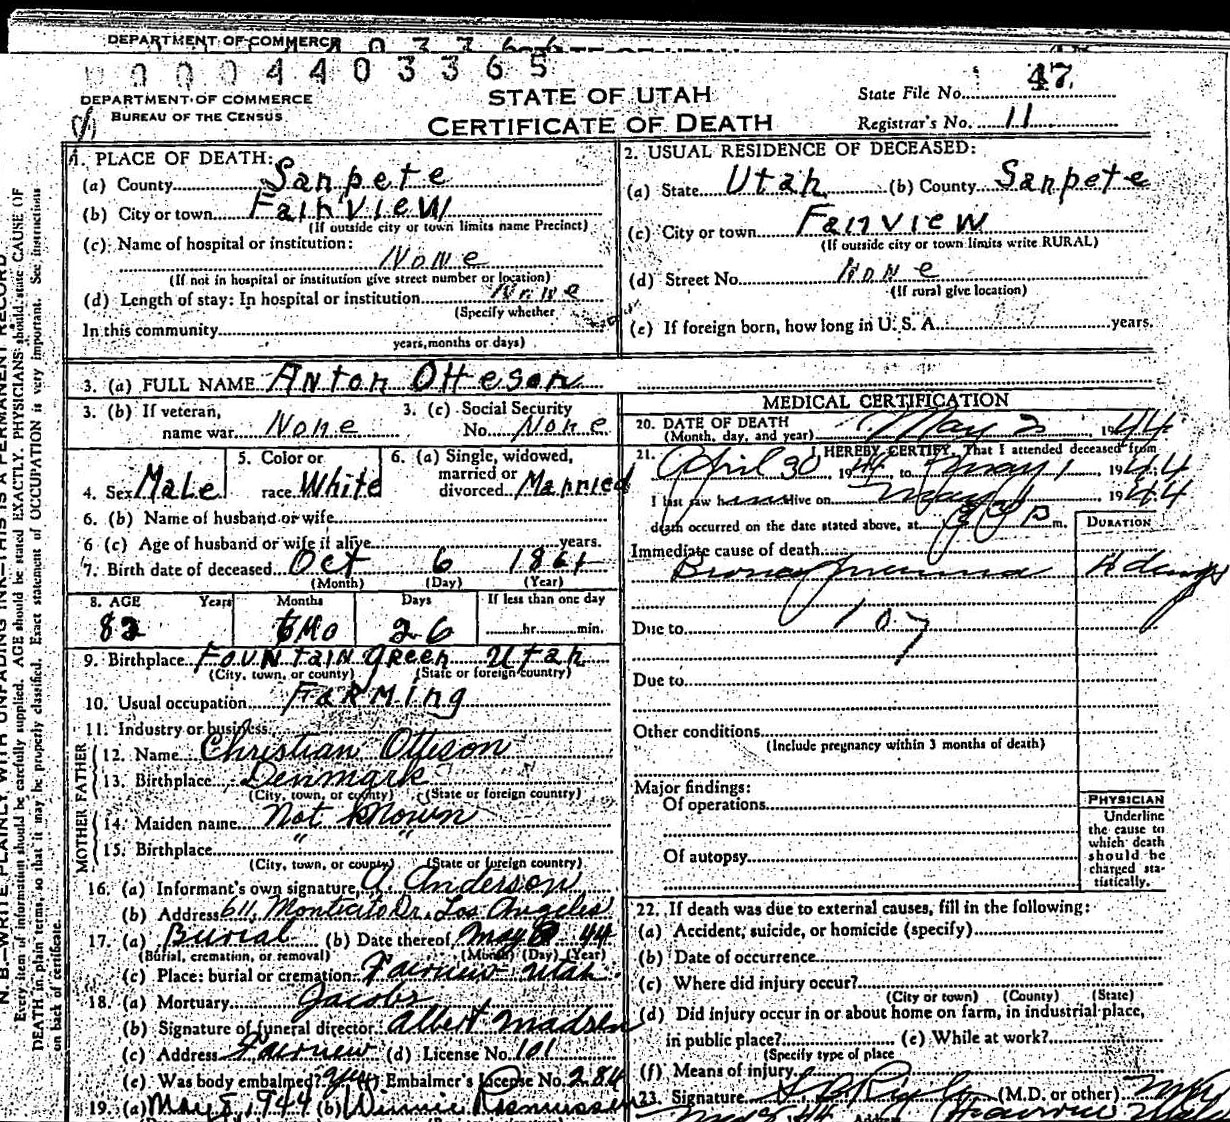 DEPARTMENT OF COMMERCE
0 0 0 4 4 0 3 3 6 5
DEPARTMENT OF COMMERCE
BUREAU OF THE CENSUS
STATE OF UTAH
CERTIFICATE OF DEATH
State File No. 47
Registrar's No. 11
N. B.—WRITE PLAINLY WITH UNFADING INK—THIS IS A PERMANENT RECORD.
Every item of information should be carefully supplied. AGE should be stated EXACTLY. PHYSICIANS should state CAUSE OF
DEATH in plain terms, so that it may be properly classified. Exact statement of OCCUPATION is very important. See instructions
on back of certificate.
1. PLACE OF DEATH:
(a) County Sanpete
(b) City or town Fairview
(If outside city or town limits name Precinct)
(c) Name of hospital or institution:
None
(If not in hospital or institution give street number or location)
(d) Length of stay: In hospital or institution None
(Specify whether
In this community
years, months or days)
2. USUAL RESIDENCE OF DECEASED:
(a) State Utah (b) County Sanpete
(c) City or town Fairview
(If outside city or town limits write RURAL)
(d) Street No. None
(If rural give location)
(e) If foreign born, how long in U. S. A. years.
3. (a) FULL NAME Anton Otteson
3. (b) If veteran, name war None
3. (c) Social Security No. None
4. Sex Male
5. Color or race White
6. (a) Single, widowed, married or divorced Married
6. (b) Name of husband or wife
6 (c) Age of husband or wife if alive years.
7. Birth date of deceased Oct 6 1861
(Month) (Day) (Year)
8. AGE Years Months Days If less than one day
82 6 Mo 26 hr. min.
9. Birthplace Fountain Green Utah
(City, town, or county) (State or foreign country)
10. Usual occupation Farming
11. Industry or business
FATHER
12. Name Christian Otteson
13. Birthplace Denmark
(City, town, or county) (State or foreign country)
MOTHER
14. Maiden name Not Known
15. Birthplace " "
(City, town, or county) (State or foreign country)
16. (a) Informant's own signature A Anderson
(b) Address 611, Monticito Dr, Los Angeles
17. (a) Burial (b) Date thereof May 44
(Burial, cremation, or removal) (Month) (Day) (Year)
(c) Place: burial or cremation Fairview Utah
18. (a) Mortuary Jacobs
(b) Signature of funeral director Albert Madsen
(c) Address Fairview (d) License No. 101
(e) Was body embalmed? yes (f) Embalmer's License No. 284
19. (a) May 5, 1944 (b) Winnie Rasmussen
MEDICAL CERTIFICATION
20. DATE OF DEATH
(Month, day, and year) May 2 1944
21. I HEREBY CERTIFY, That I attended deceased from
April 30 1944 to May 1 1944
I last saw him alive on May 1 1944
death occurred on the date stated above, at P m.
DURATION
Immediate cause of death
Bronchopneumonia 4 days
Due to 107
Due to
Other conditions
(Include pregnancy within 3 months of death)
Major findings:
Of operations
Of autopsy
PHYSICIAN
Underline
the cause to
which death
should be
charged sta-
tistically.
22. If death was due to external causes, fill in the following:
(a) Accident, suicide, or homicide (specify)
(b) Date of occurrence
(c) Where did injury occur?
(City or town) (County) (State)
(d) Did injury occur in or about home on farm, in industrial place,
in public place? (e) While at work?
(Specify type of place
(f) Means of injury
23. Signature (M.D. or other)
Address Fairview Utah